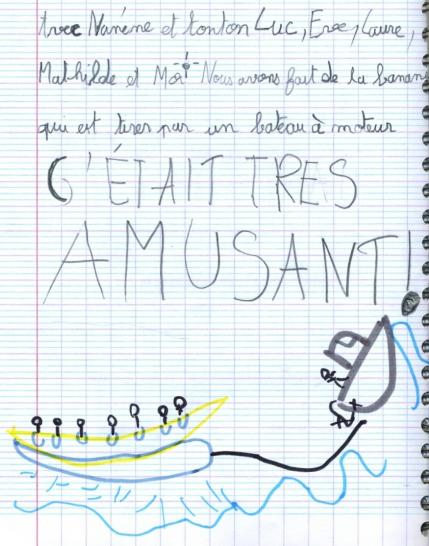 Avec Nanène et tonton Luc, Eroc, Laure,
Mathilde et Moi Nous avons fait de la banan
qui est tirer par un bateau à moteur
C'ÉTAIT TRES
AMUSANT!